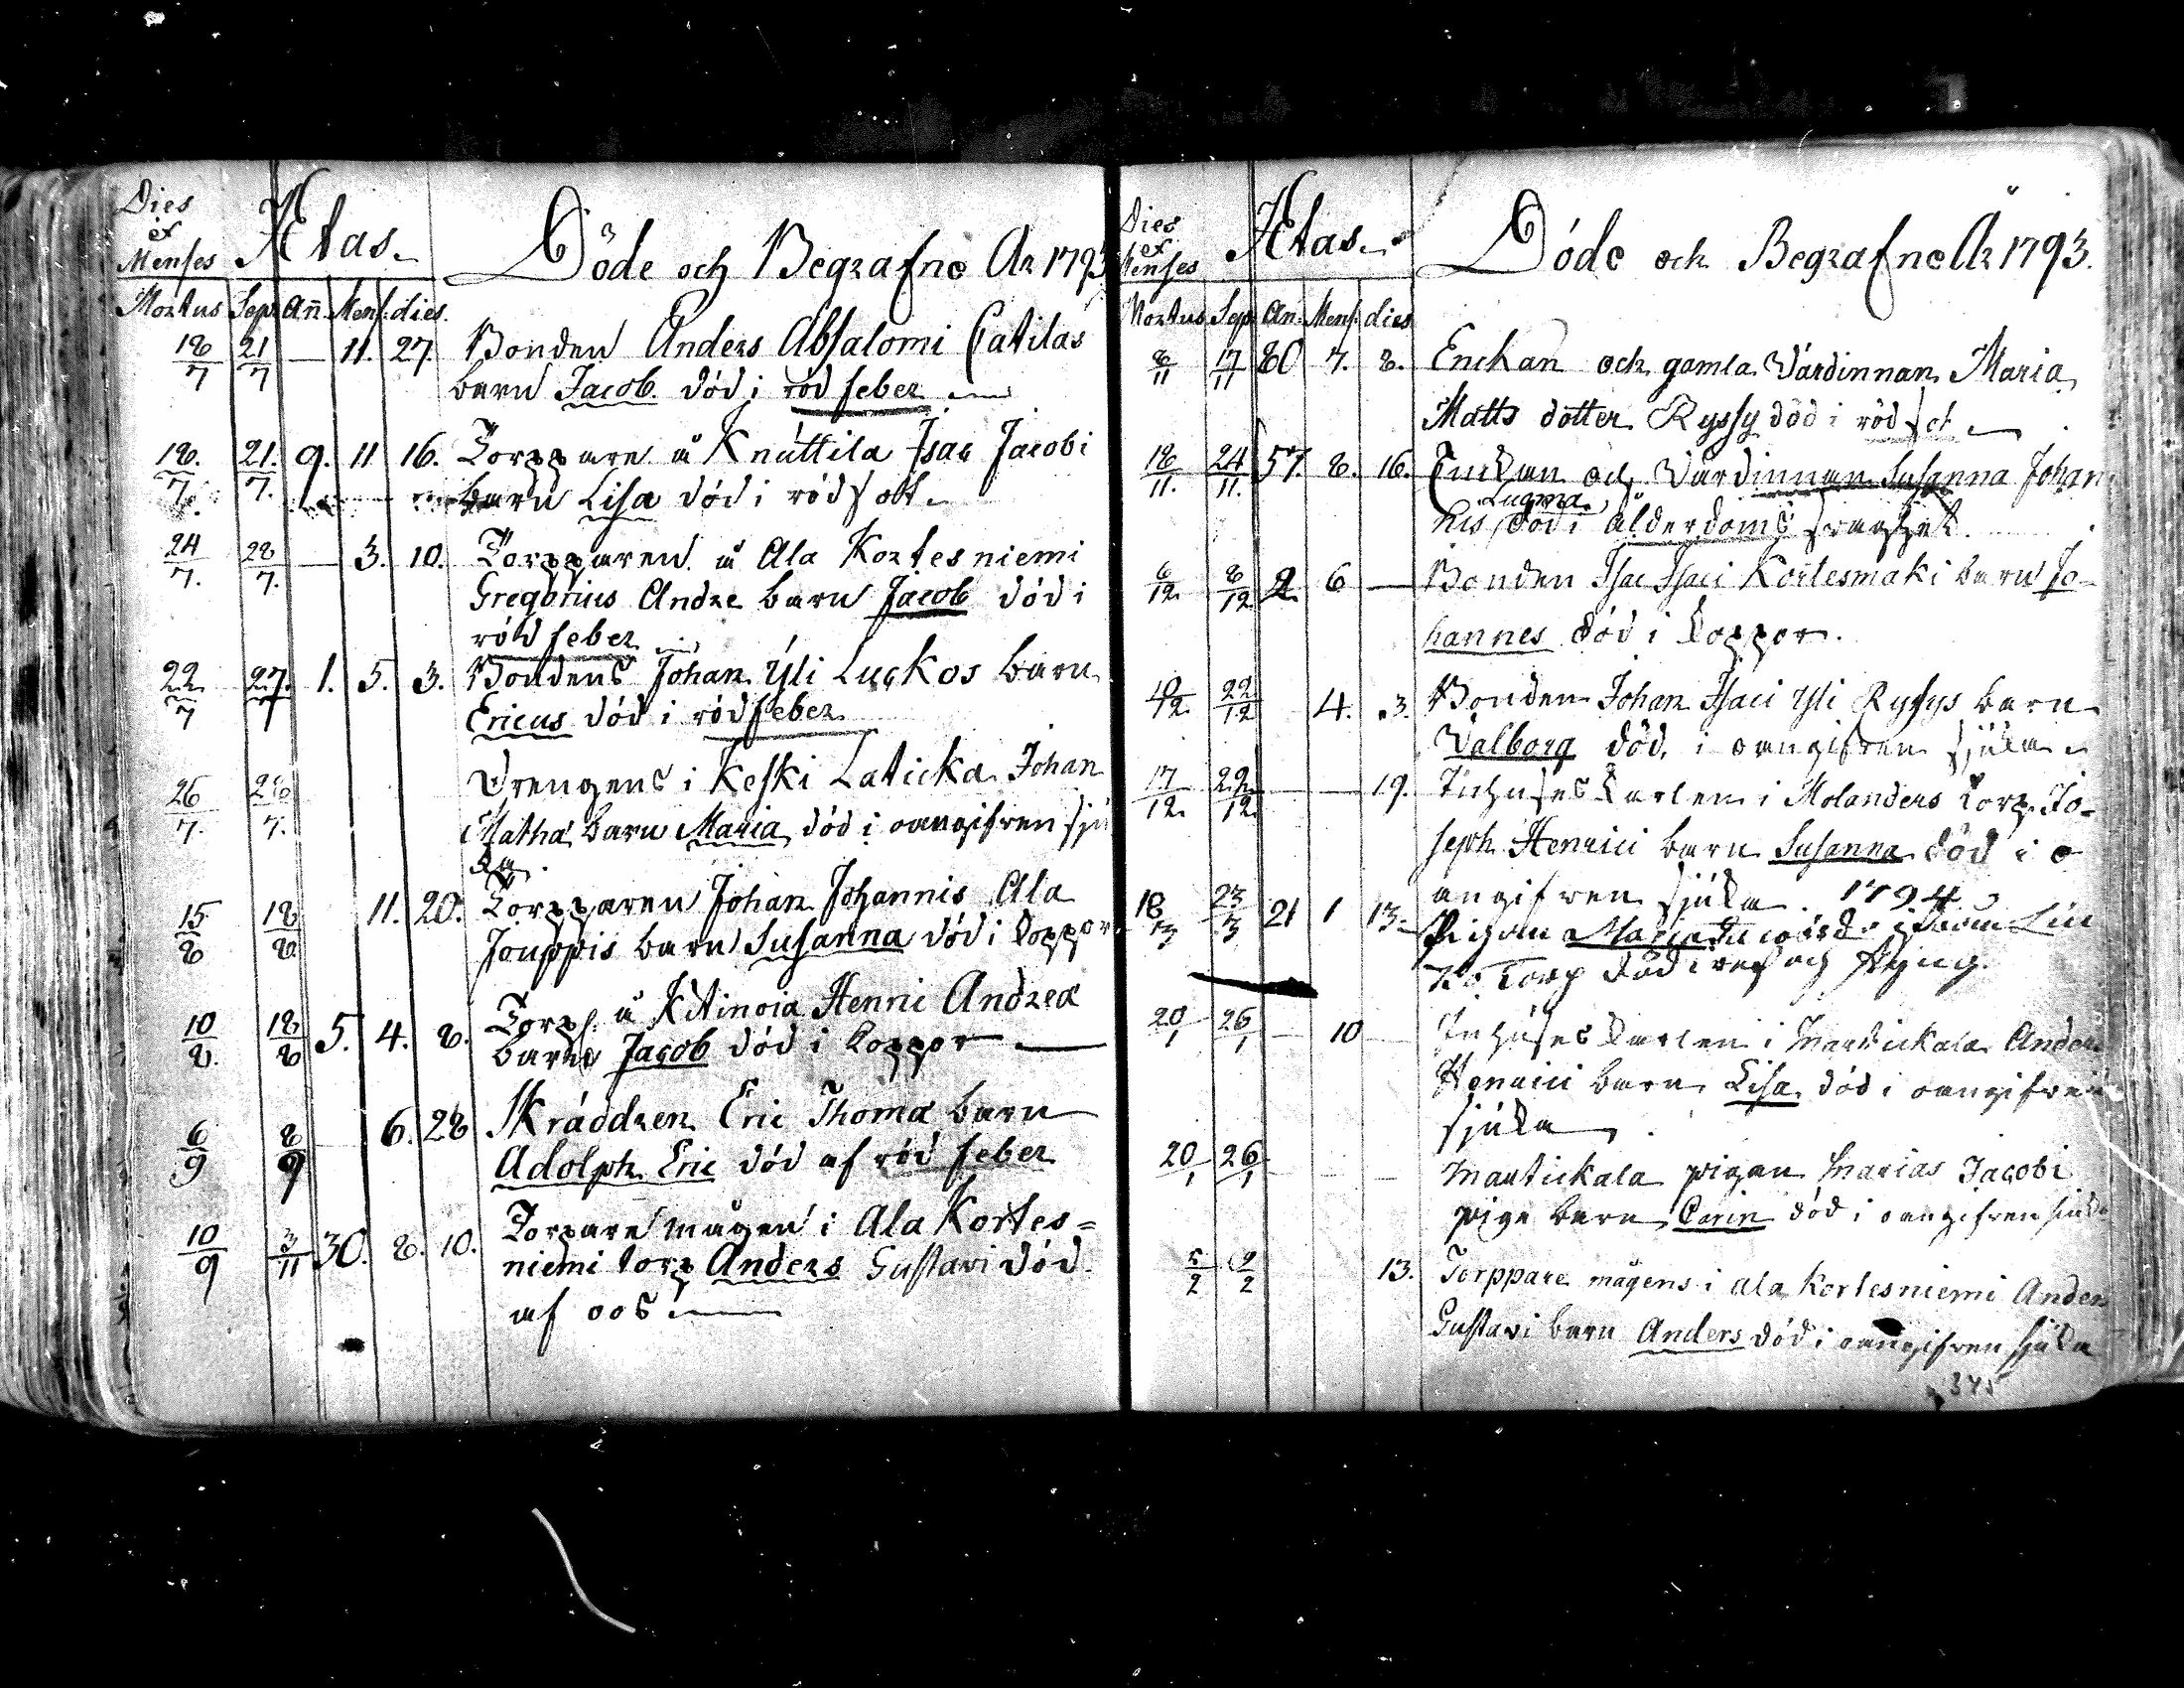 Dies
et
Menses
Ætas.
Döde och Begrafne År 1793
Mortus Sep. Añ. Mens. dies.
18/7 21/7 — 11. 27. Bonden Anders Absalomi Catilas
barn Jacob. död i röd feber
18./7. 21./7. 9. 11 16. Torppare å Knuttila Isac Jacobi
barn Lisa död i rödsot
24/7. 28/7. — 3. 10. Torpparen å Ala Kortesniemi
Gregorius Andræ barn Jacob död i
röd feber
22/7 27./7 1. 5. 3. Bondens Johan Yli Luckos barn
Ericus död i röd feber
26/7. 28/7. Drengens i Keski Laticka Johan
Matha barn Maria död i oangifven sju
ka.
15/8 18/8 11. 20. Torpparen Johan Johannis Ala
Jouppis barn Susanna död i koppor
10/8. 18/8 5. 4. 8. Torp. å Kitinoia Henric Andreæ
barn Jacob död i koppor
6/9 8/9 — 6. 28 Skräddren Eric Thomæ barn
Adolph Eric död af röd feber
10/9 3/11 30. 8. 10. Torpare mågen i Ala Kortes=
niemi torp Anders Gustavi död
af
Dies
et
Menses
Ætas.
Döde och Begrafne År 1793.
Mortus Sep. An. Mens. dies
8/11 17/11 80 7. 8. Enckan och gamla Värdinnan Maria
Matts dotter Ryssy död i röd sot
18/11. 24/11. 57. 8. 16. Enckan och Värdinnan Susanna Johan
Luoma
nis död i ålderdoms
6/12. 8/12 2 6 — Bonden Isac Isaci Kortesmaki barn Jo-
hannes död i koppor.
19/12. 22/12 4. 3. Bonden Johan Isaci Yli Ryssys barn
Walborg död i oangifven sjuka
17/12. 22/12. — — 19. Inhyses karlen i Molanders torp Jo-
seph Henrici barn Susanna död i o
angifven sjuka. 1794
18/3 23/3 21 1 13. Pigan Maria
Torp död i och
20/1 26/1 — 10 — Inhyses karlen i Martickala Anders
Henrici barn Lisa död i oangifven
sjuka
20/1 26/1 — — — Martickala pigan Marias Jacobi
pige barn Carin död i oangifven sjuka
5/2 9/2 13. Torppare mågens i ala Kortesniemi Anders
Gustavi barn Anders död i oangifven sjuka
345